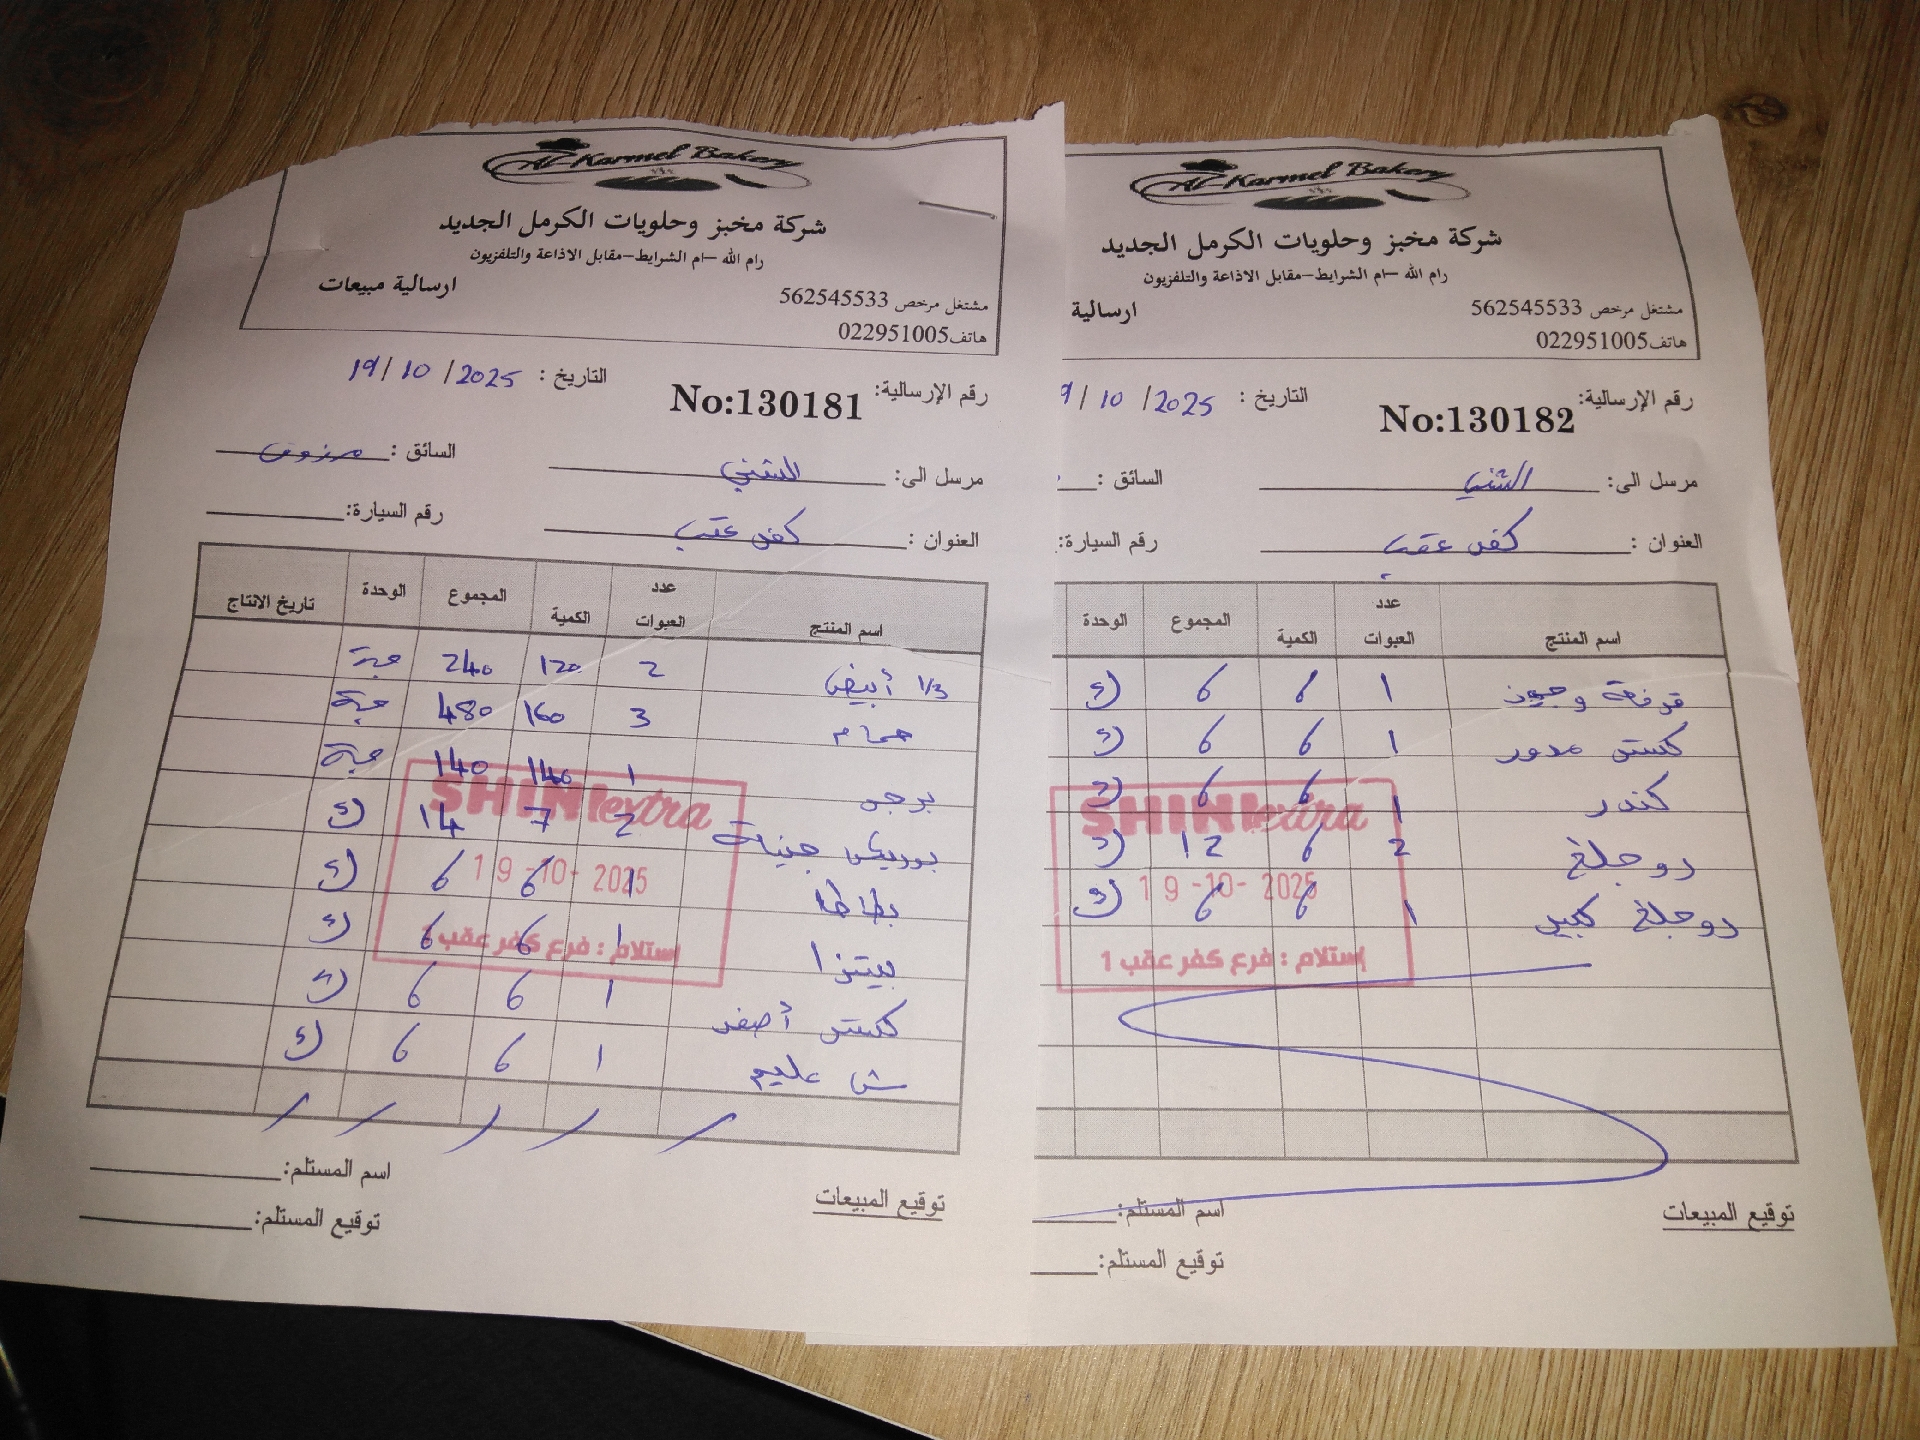 Al-Karmel Bakery
شركة مخبز وحلويات الكرمل الجديد
رام الله –ام الشرايط–مقابل الاذاعة والتلفزيون
مشتغل مرخص 562545533
ارسالية مبيعات
هاتف022951005
رقم الإرسالية: No:130181
التاريخ : 19/ 10 /2025
مرسل الى: الشني
السائق : مرزوق
العنوان : كفر عقب
رقم السيارة:
اسم المنتج عدد العبوات الكمية المجموع الوحدة تاريخ الانتاج
1/3 أبيض 2 120 240 حبة
حمام 3 160 480 حبة
برجر 1 140 140 حبة
بوريكس جبنة 2 7 14 ك
بطاطا 1 6 6 ك
بيتزا 1 6 6 ك
كستر أصفر 1 6 6 ك
ش عليم 1 6 6 ك
SHINI extra
19-10-2025
إستلام : فرع كفر عقب 1
توقيع المبيعات
اسم المستلم:
توقيع المستلم:
Al-Karmel Bakery
شركة مخبز وحلويات الكرمل الجديد
رام الله –ام الشرايط–مقابل الاذاعة والتلفزيون
مشتغل مرخص 562545533
ارسالية
هاتف022951005
رقم الإرسالية: No:130182
التاريخ : 9/ 10 /2025
مرسل الى: الشني
السائق :
العنوان : كفر عقب
رقم السيارة:
اسم المنتج عدد العبوات الكمية المجموع الوحدة
قرفة وجوز 1 6 6 ك
كستر مدور 1 6 6 ك
كندر 1 6 6 ك
دوجلغ 2 6 12 ك
دوجلغ كبير 1 6 6 ك
SHINI extra
19-10-2025
إستلام : فرع كفر عقب 1
توقيع المبيعات
اسم المستلم:
توقيع المستلم: